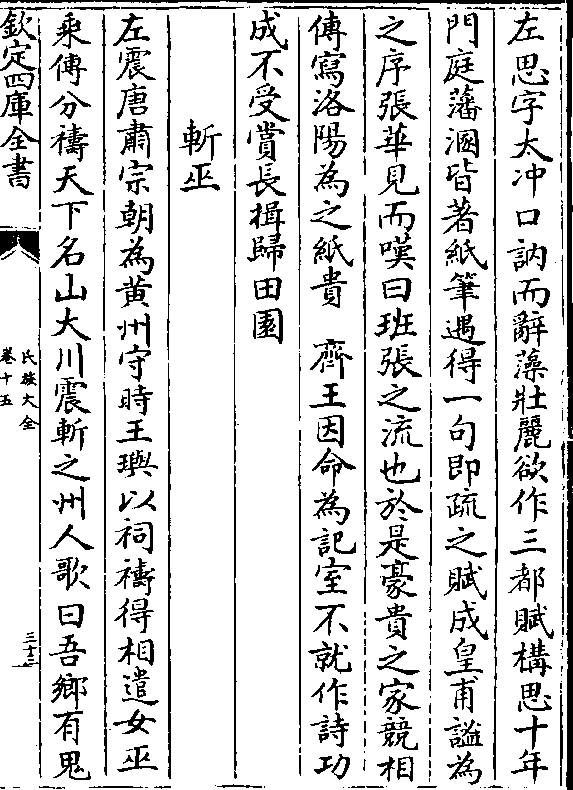 左思字太冲口訥而辭藻壯麗欲作三都賦構思十年
門庭藩溷皆著紙筆遇得一句即疏之賦成皇甫謐為
之序張華見而嘆曰班張之流也於是豪貴之家競相
傳寫洛陽為之紙貴　齊王因命為記室不就作詩功
成不受賞長揖歸田園
斬巫
左震唐肅宗朝為黄州守時王璵以祠禱得相遣女巫
乘傳分禱天下名山大川震斬之州人歌曰吾鄉有鬼
欽定四庫全書
氏族大全
卷十五
三十三